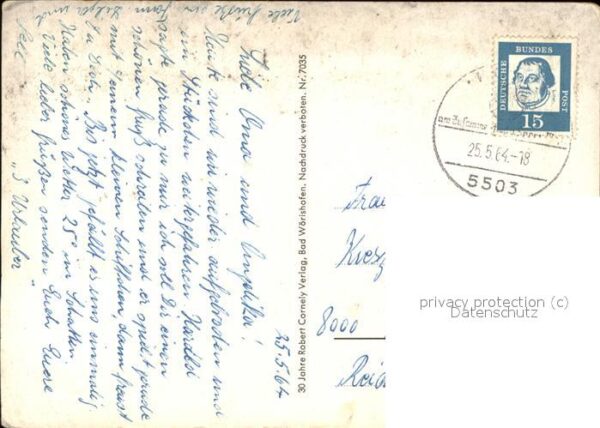 25.5.64
Liebe Oma und Angelika!
Heute sind wir wieder aufgebrochen und
ein Stückchen weitergefahren. Harald
sagte gerade zu mir ich soll Dir einen
schönen Gruß schreiben und er spielt gerade
mit seinem kleinen Schiffchen, dann freust
Du Dich. Bis jetzt gefällt es uns einmalig
Haben schönes Wetter 25° im Schatten.
Viele liebe Grüßen senden Euch Eure
"3 Urlauber"
Viele Grüße an Fam.
und
30 Jahre Robert Cornely Verlag, Bad Wörishofen. Nachdruck verboten. Nr. 7035
DEUTSCHE BUNDES POST
15
25.5.64.-18
5503
Frau
8000
privacy protection (c)
Datenschutz